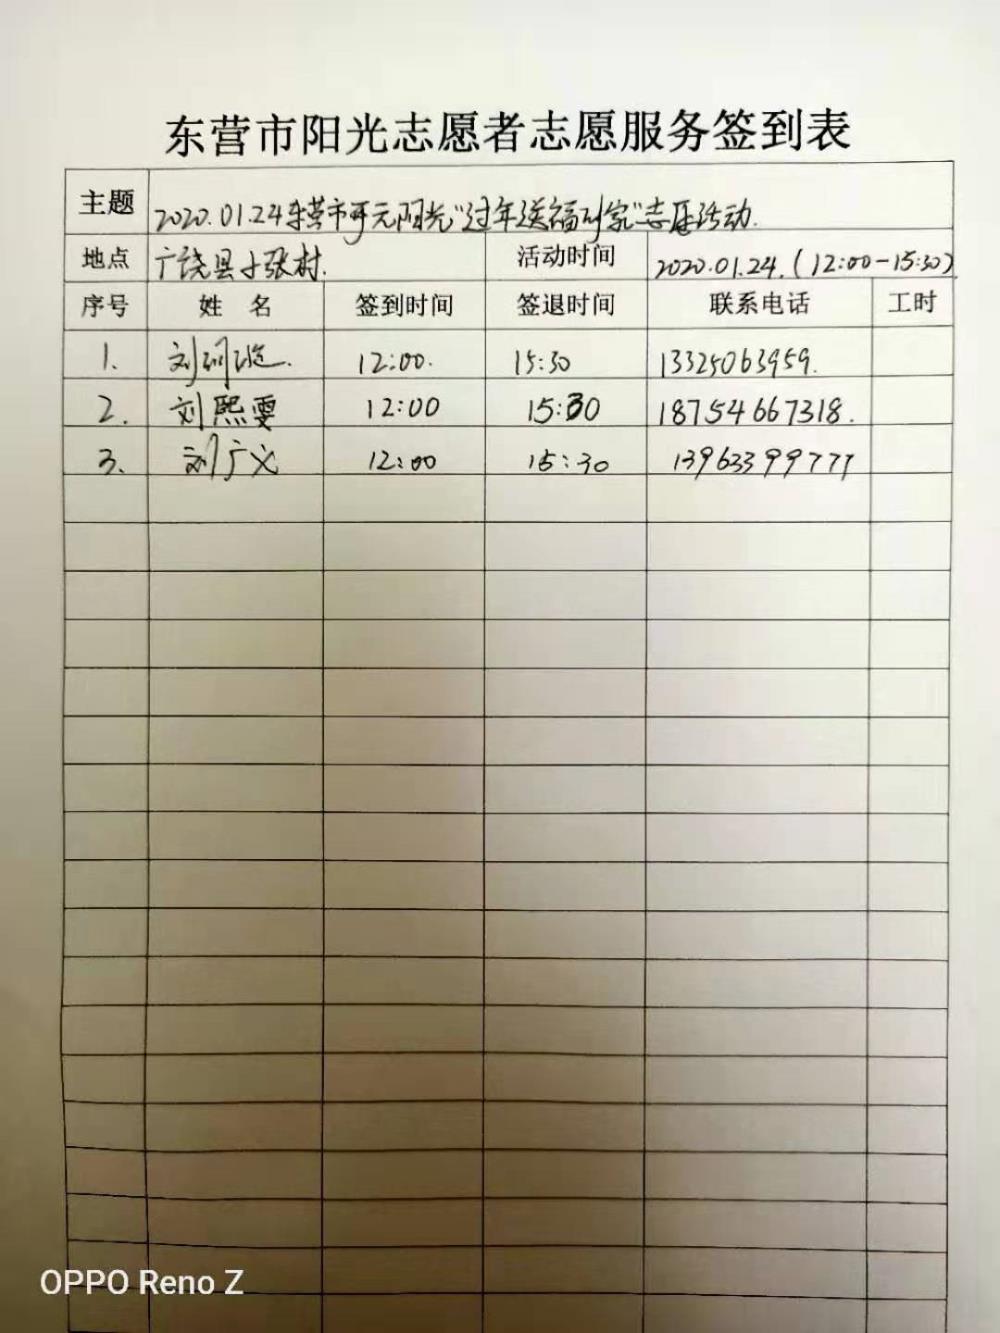 东营市阳光志愿者志愿服务签到表
主题 2020.01.24东营市开元阳光"过年送福到家"志愿活动.
地点 广饶县小张村. 活动时间 2020.01.24.(12:00-15:30)
序号 姓 名 签到时间 签退时间 联系电话 工时
1. 刘 12:00. 15:30 13325063959.
2. 刘熙雯 12:00 15:30 18754667318.
3. 刘广义 12:00 15:30 13963399777
OPPO Reno Z